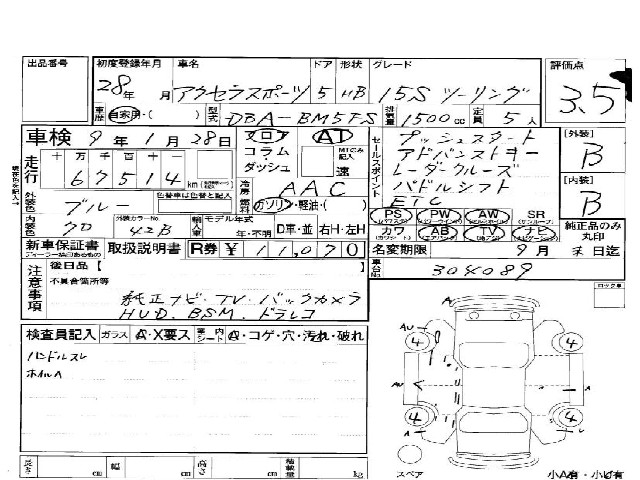 出品番号 初度登録年月 車名 ドア 形状 グレード 評価点
28年 月 アクセラスポーツ 5 HB 15S ツーリング 3.5
車歴 自家用・( ) 型式 DBA-BM5FS 排気量 1500cc 定員 5人
車検 9年 1月 28日 フロア AT コラム ダッシュ MTのみ記入 速
セールスポイント
プッシュスタート
アドバンストキー
レーダークルーズ
パドルシフト
ETC
[外装] B
[内装] B
走行 十 万 千 百 十 一
67514 km
冷房 AAC
燃料 ガソリン・軽油・( )
外装色 ブルー 色替車は色替と記入
内装色 クロ 外装カラーNo 42B 輸入車 モデル年式 年・不明 D車・並 右H・左H
PS PW AW SR
カワ AB TV ナビ
純正品のみ丸印
新車保証書 取扱説明書 R券 ¥11,070 名変期限 9月 末日迄
車台No 304089
注意事項 後日品[
不具合箇所等
純正ナビ・TV・バックカメラ
HUD. BSM. ドラレコ
検査員記入 ガラス A・X要ス 室内シート A・コゲ・穴・汚れ・破れ
ハンドルスレ
ホイルA
ロック車
A
AU
4 4
AU A
4 4
A
スペア
小A有・小U有
長さ cm 幅 cm 高さ cm 積載量 kg